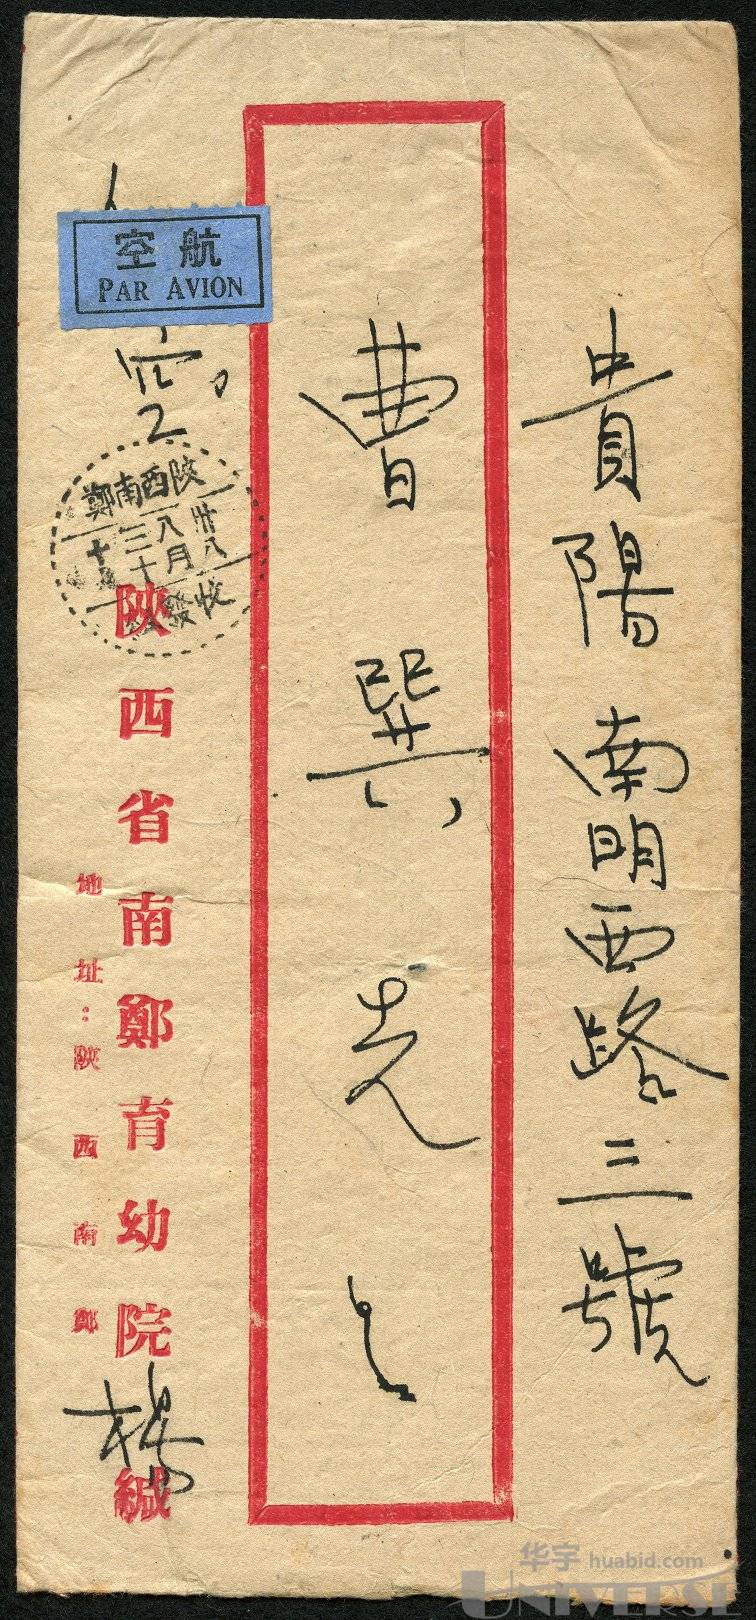 貴陽南明西路三號
曹巽先生
航空
PAR AVION
陝西南鄭
卅八
八月
三十
收發
陝西省南鄭育幼院楊緘
地址：陝西南鄭
华宇 huabid.com
UNIVERSE